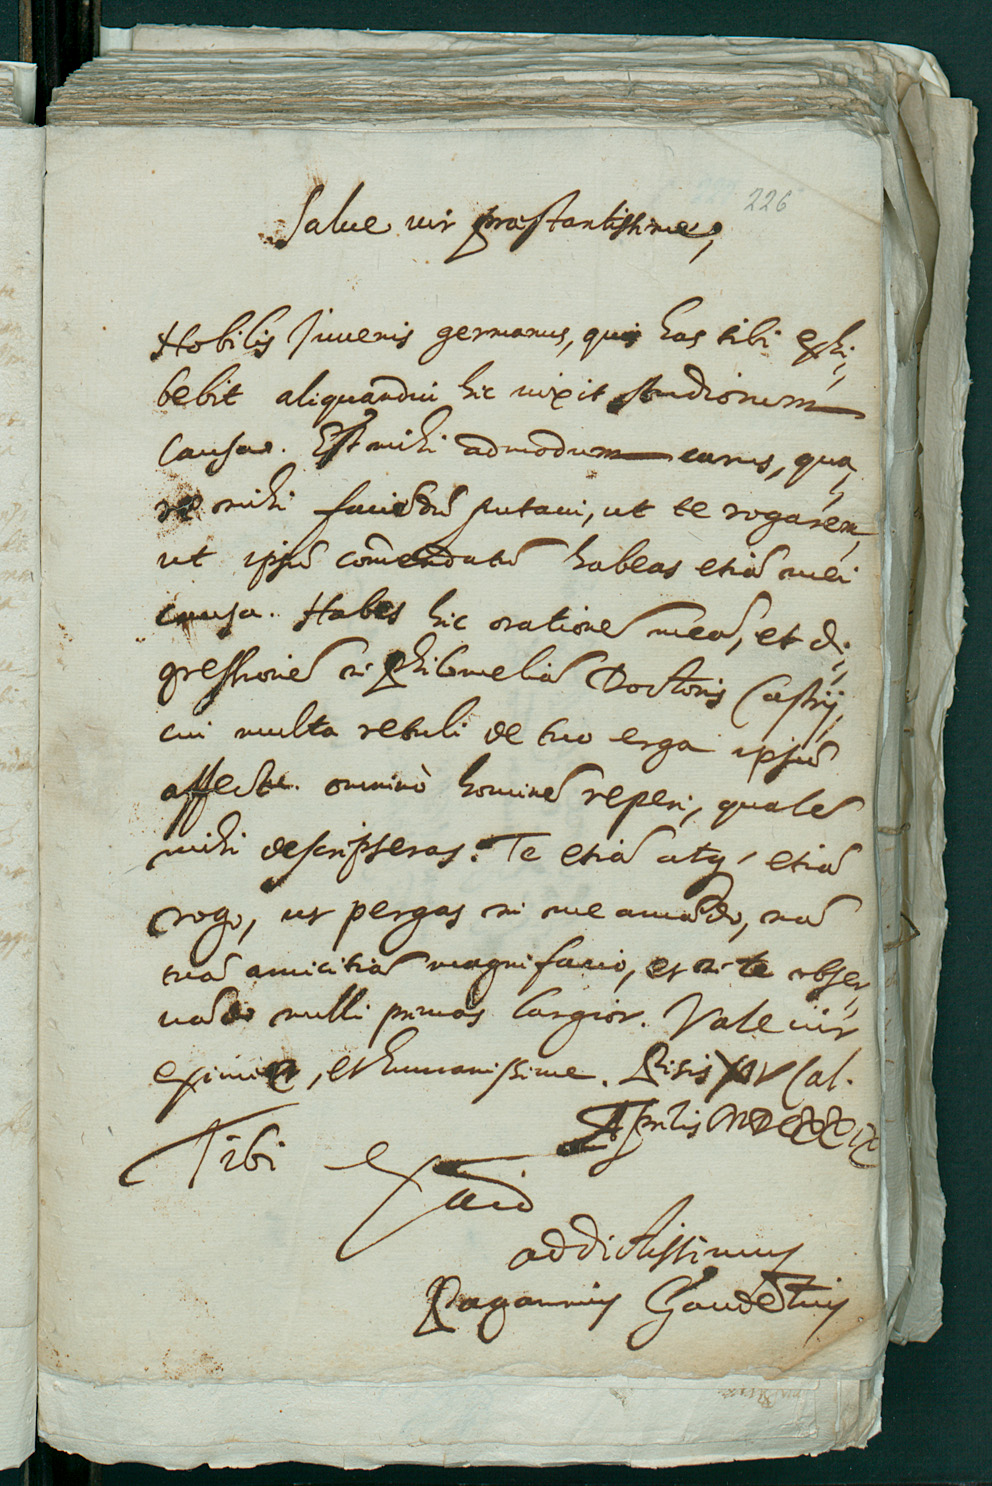 226
Salue uir præstantissime,
Nobilis Juuenis germanus, qui has tibi exhi,
bebit aliquandiu hic uixit studiorum
causa. Est mihi admodum carus, qua,
re mihi faciẽdũ putaui, ut te rogarem,
ut ipsũ com̃endatũ habeas etiã mei
causa. Habes hic orationẽ meã, et di,
gressionẽ in Philomeliã Doctoris Castrij,
cui multa retuli de tuo erga ipsũ
affectu. omninò hominẽ reperi, qualẽ
mihi descripseras. Te etiã atq, etiã
rogo, ut pergas in me amãdo, nã
tuã amicitiã magni facio, et in te obser,
uãdo nulli primas largior. Vale uir
eximie, et humanissime. Pisis XIV Cal.
Aprilis
Tibi
addictissimus
Paganinus Gaudẽtius